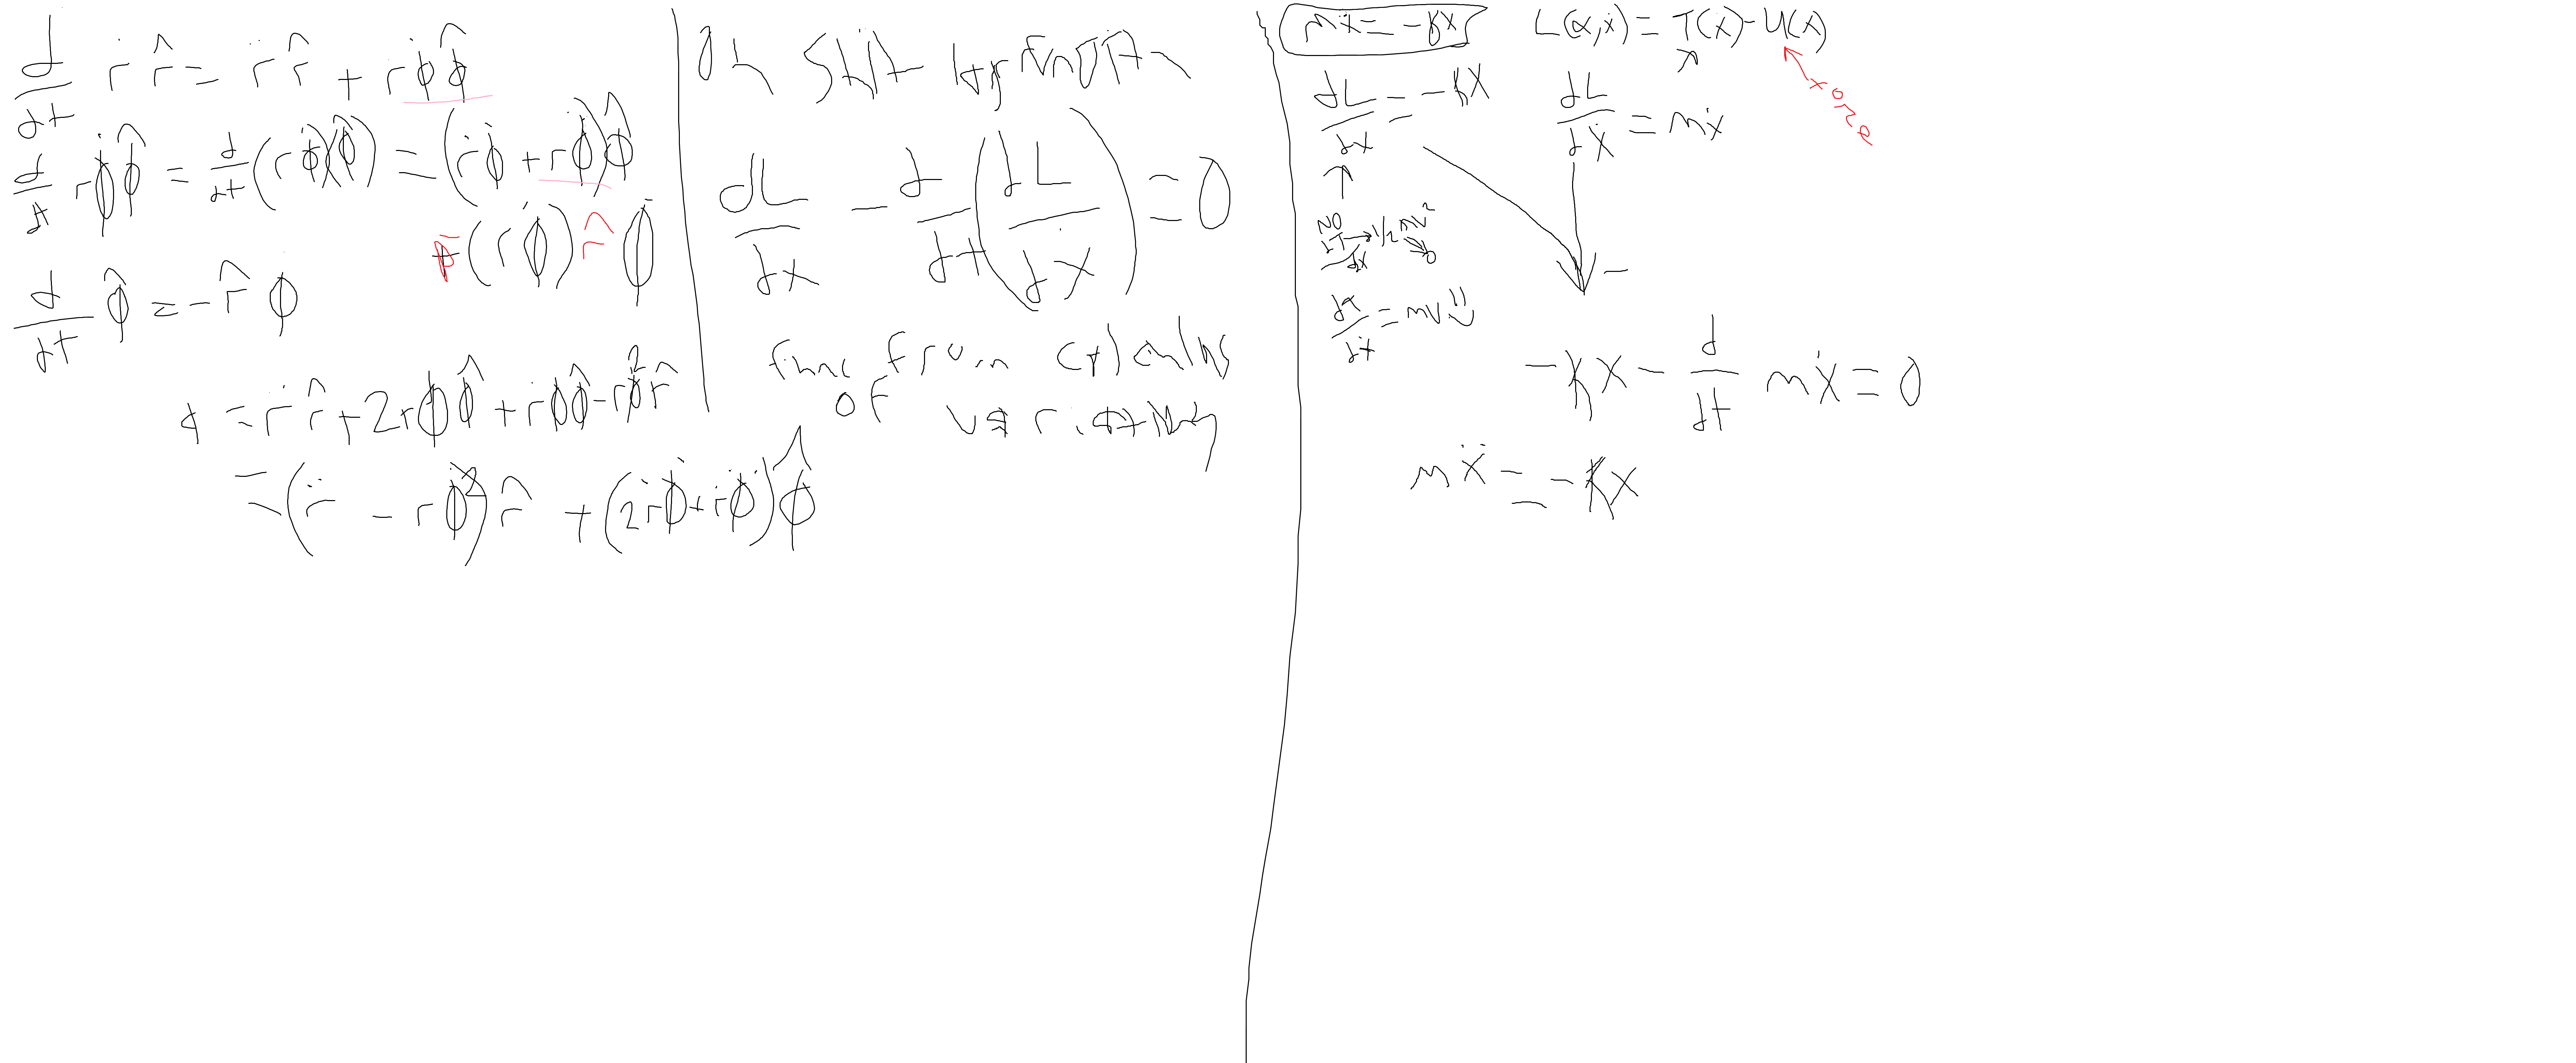 d/dt ṙ r̂ = r̈ r̂ + ṙ φ̇ φ̂
d/dt r φ̇ φ̂ = d/dt (r φ̇)(φ̂) = (ṙ φ̇ + r φ̈) φ̂
- (r φ̇) r̂ φ̇
d/dt φ̂ = - r̂ φ̇
a = r̈ r̂ + 2ṙ φ̇ φ̂ + r φ̈ φ̂ - r φ̇² r̂
= (r̈ - r φ̇²) r̂ + (2ṙ φ̇ + r φ̈) φ̂
Oh shit
dL/dx - d/dt (dL/dẋ) = 0
func from calculus
of variations
mẍ = -kx
L(x,ẋ) = T(ẋ) - U(x)
dL/dx = -kx
dL/dẋ = mẋ
NO
dT/dx → 1/2 mv²
0
= mv
-
-kx - d/dt mẋ = 0
mẍ = -kx